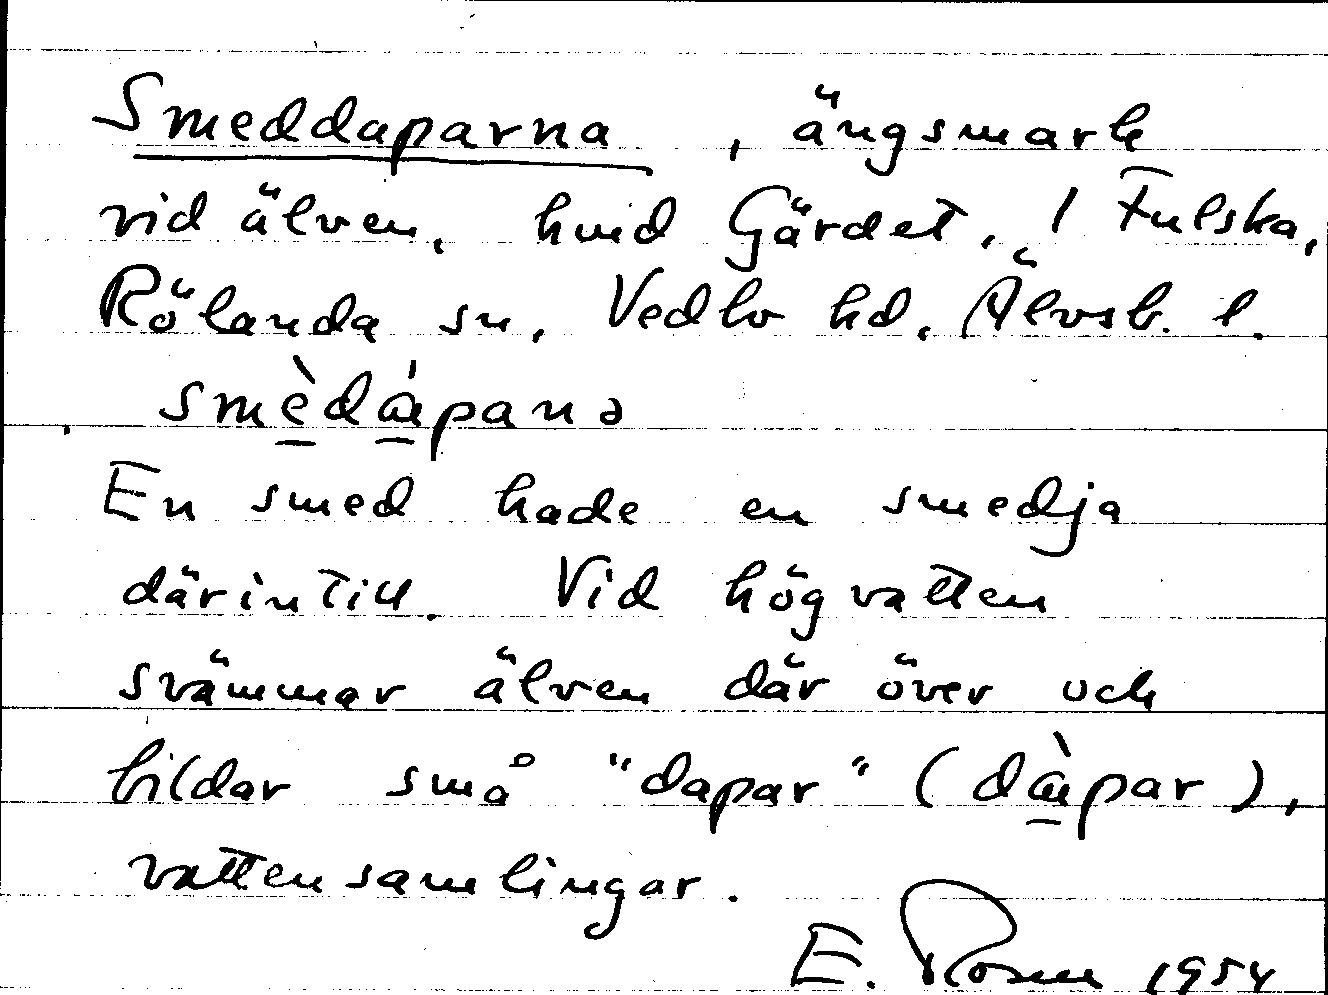 Smeddaparna, ängsmark
vid älven, hmd Gärdet, i Fulska,
Rölanda sn, Vedbo hd, Älvsb. l.
smèdápanə
En smed hade en smedja
därintill. Vid högvatten
svämmar älven där över och
bildar små "dapar" (dàpar),
vattensamlingar.
E. Rosell 1954